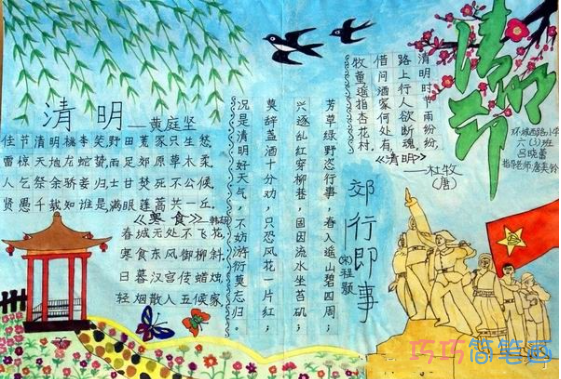 清明
——黄庭坚
佳节清明桃李笑野田荒冢只生愁
雷惊天地龙蛇蛰雨足郊原草木柔
人乞祭余骄妾妇士甘焚死不公候
贤愚千载知谁是满眼蓬蒿共一丘
《寒食》——韩翃
春城无处不飞花,
寒食东风御柳斜.
日暮汉宫传蜡烛,
轻烟散入五候家
郊行即事
(宋)程颢
芳草绿野恣行事,春入遥山碧四周;
兴逐乱红穿柳巷,固因流水坐苔矶;
莫辞盏酒十分劝,只恐风花一片红;
况是清明好天气,不妨游衍莫忘归。
清明时节雨纷纷,
路上行人欲断魂
借问酒家何处有
牧童遥指杏花村.
《清明》
——杜牧
(唐)
清明节
环城西路小学
班
指导老师:唐美
巧巧简笔画